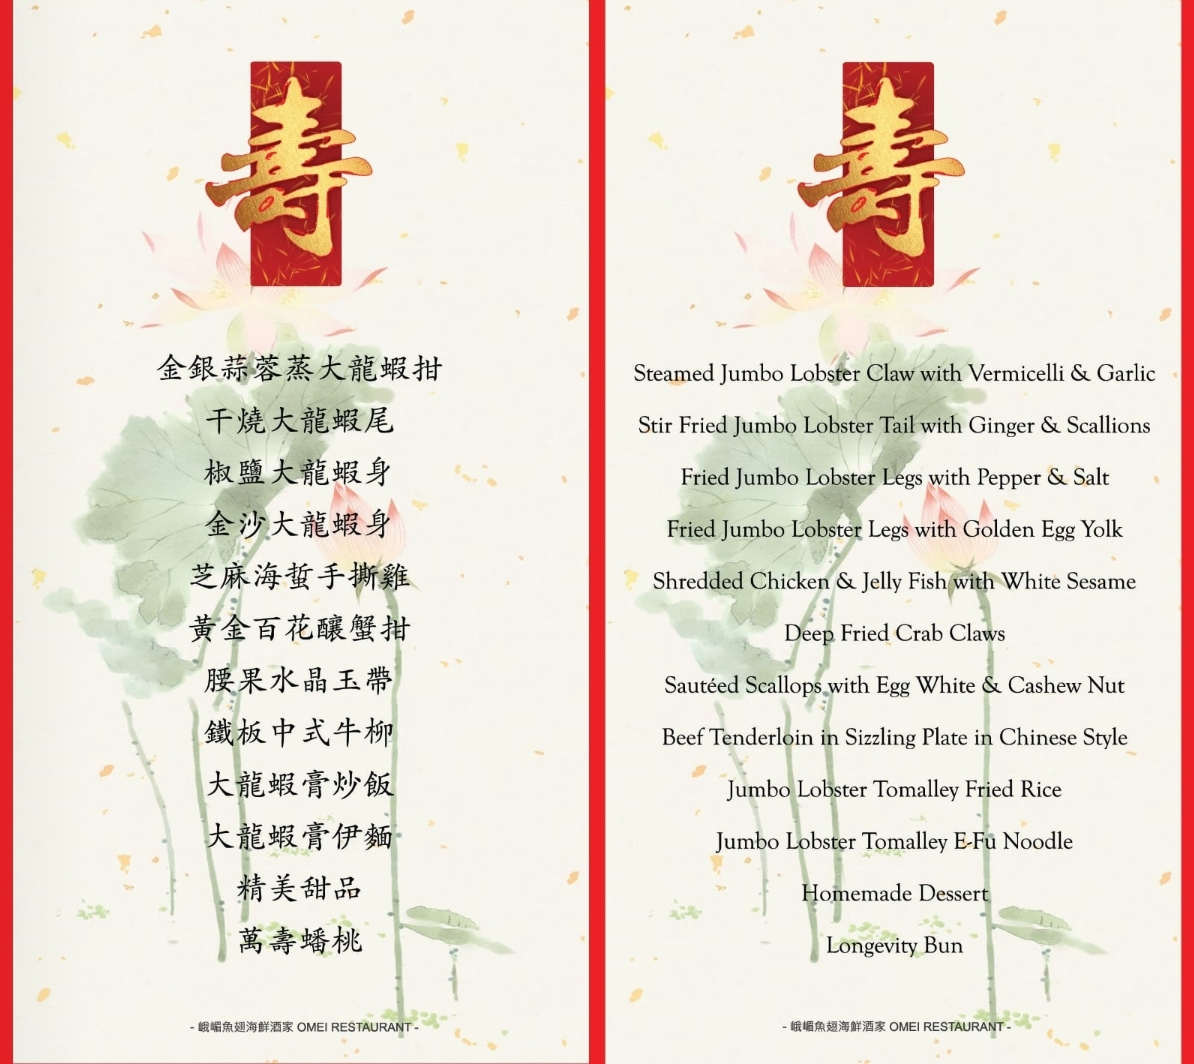 壽
金銀蒜蓉蒸大龍蝦拑
干燒大龍蝦尾
椒鹽大龍蝦身
金沙大龍蝦身
芝麻海蜇手撕雞
黃金百花釀蟹拑
腰果水晶玉帶
鐵板中式牛柳
大龍蝦膏炒飯
大龍蝦膏伊麵
精美甜品
萬壽蟠桃
- 峨嵋魚翅海鮮酒家 OMEI RESTAURANT -
壽
Steamed Jumbo Lobster Claw with Vermicelli & Garlic
Stir Fried Jumbo Lobster Tail with Ginger & Scallions
Fried Jumbo Lobster Legs with Pepper & Salt
Fried Jumbo Lobster Legs with Golden Egg Yolk
Shredded Chicken & Jelly Fish with White Sesame
Deep Fried Crab Claws
Sautéed Scallops with Egg White & Cashew Nut
Beef Tenderloin in Sizzling Plate in Chinese Style
Jumbo Lobster Tomalley Fried Rice
Jumbo Lobster Tomalley E-Fu Noodle
Homemade Dessert
Longevity Bun
- 峨嵋魚翅海鮮酒家 OMEI RESTAURANT -